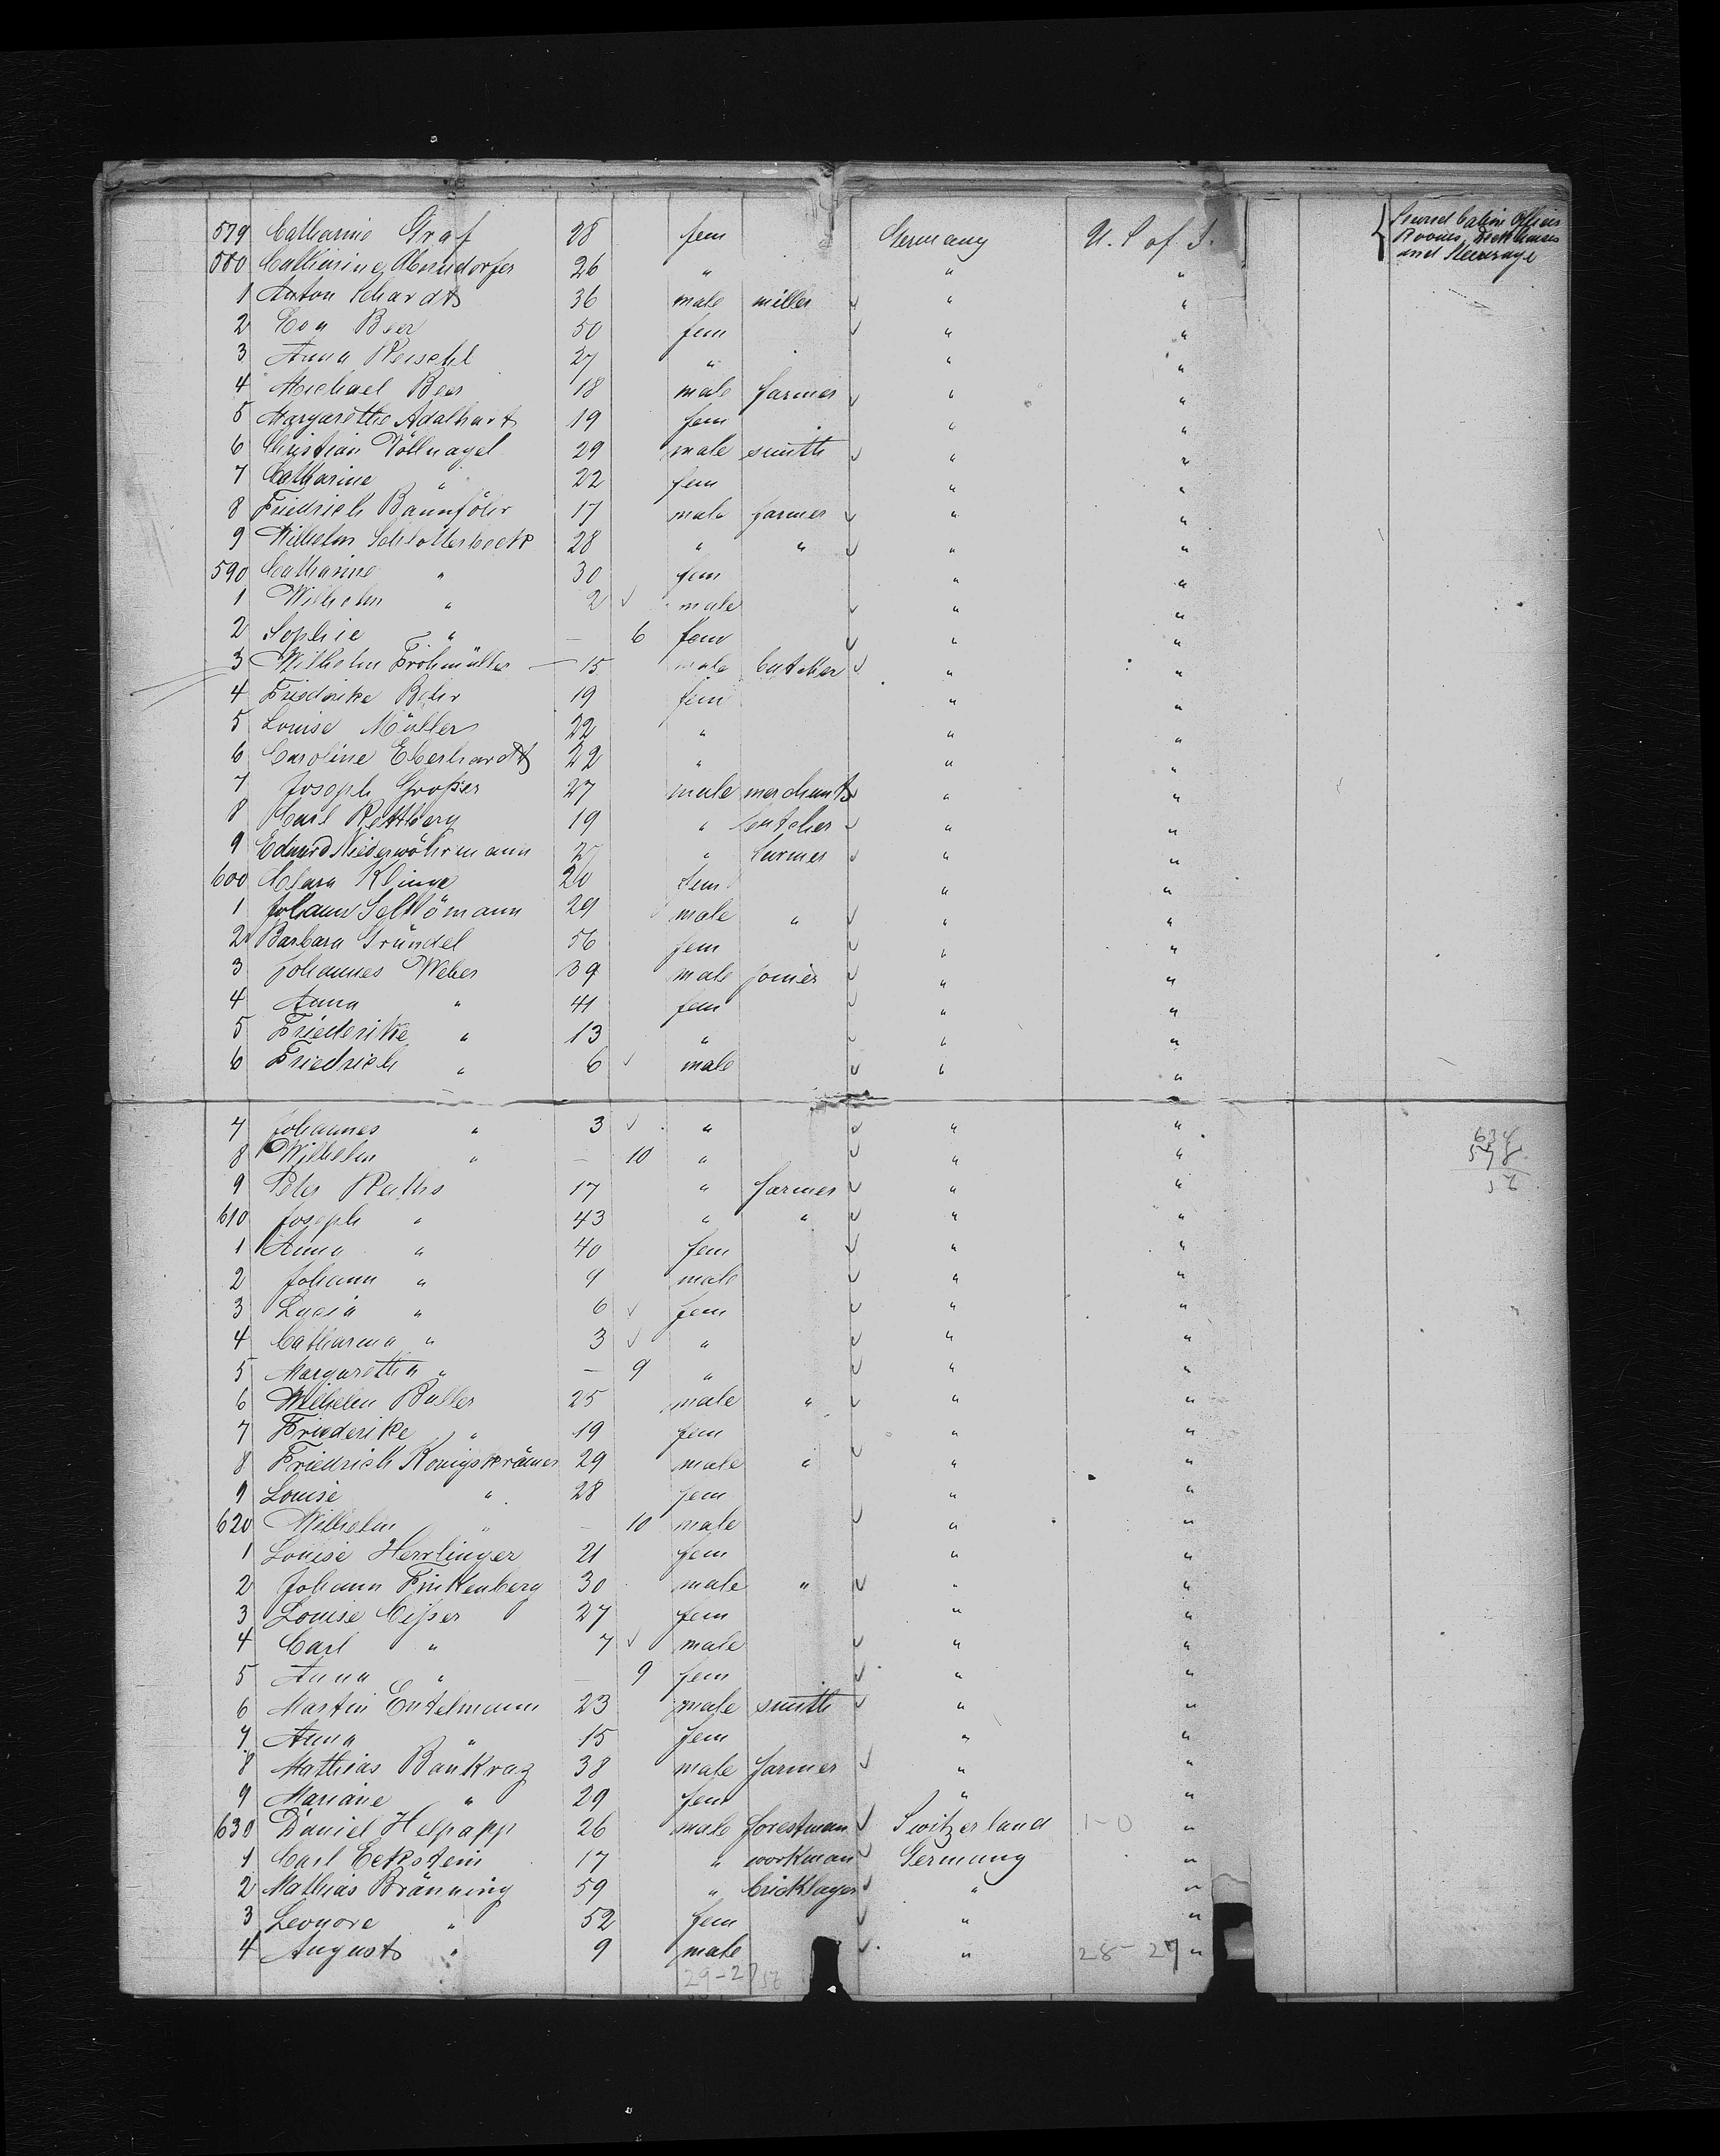 579 Catharine Graf 28 fem Germany U. S. of A. { Second Cabin Officers Rooms, Deckhouses and Steerage
580 Catharine 26 " " "
1 Anton Schardt 36 male miller " "
2 Eva Beer 50 fem " "
3 Anna 27 " " "
4 Michael Beer 18 male farmer " "
5 Margarethe Adalhart 19 fem " "
6 Christian Völlnagel 29 male smith " "
7 Catharine " 22 fem " "
8 Friedrich 17 male farmer " "
9 Wilhelm Schlotterbeck 28 " " " "
590 Catharine " 30 fem " "
1 Wilhelm " 2 male " "
2 Sophie " — 6 fem " "
3 Wilhelm Frohmüller — 15 male butcher " "
4 Friedrike Behr 19 fem " "
5 Louise Müller 22 " " "
6 Caroline Eberhardt 22 " " "
7 Joseph Großer 27 male merchant " "
8 Carl Rettberg 19 " butcher " "
9 Eduard Niederwöhrmann " farmer " "
600 Clara Klinge 20 fem " "
1 Johann 29 male " " "
2 Barbara Gründel 56 fem " "
3 Johannes Weber 39 male joiner " "
4 Anna " 41 fem " "
5 Friederike " 13 " " "
6 Friedrich " 6 male " "
7 Johannes " 3 " " "
8 Wilhelm " — 10 " " "
634
578
9 Peter Raths 17 " farmer " "
56
610 Joseph " 43 " " " "
1 Anna " 40 fem " "
2 Johann " 9 male " "
3 Lucia " 6 fem " "
4 Catharina " 3 " " "
5 Margaretha " — 9 " " "
6 Wilhelm Buller 25 male " " "
7 Friederike " 19 fem " "
8 Friedrich Königskrämer 29 male " " "
9 Louise " 28 fem " "
620 Wilhelm " — 10 male " "
1 Louise Herrlinger 21 fem " "
2 Johann Finkenberg 30 male " " "
3 Louise 27 fem " "
4 Carl " 7 male " "
5 Anna " — 9 fem " "
6 Martin Entelmann 23 male smith " "
7 Anna " 15 fem " "
8 Mathias Bankraz 38 male farmer " "
9 Mariane " 29 fem " "
630 Daniel Helpapp 26 male forestman Switzerland 1-0 "
1 Carl Eckstein 17 " workman Germany "
2 Mathias Bränning 59 " bricklayer " "
3 Leonore " 52 fem " "
4 August " 9 male " 28-27 "
29-27 56